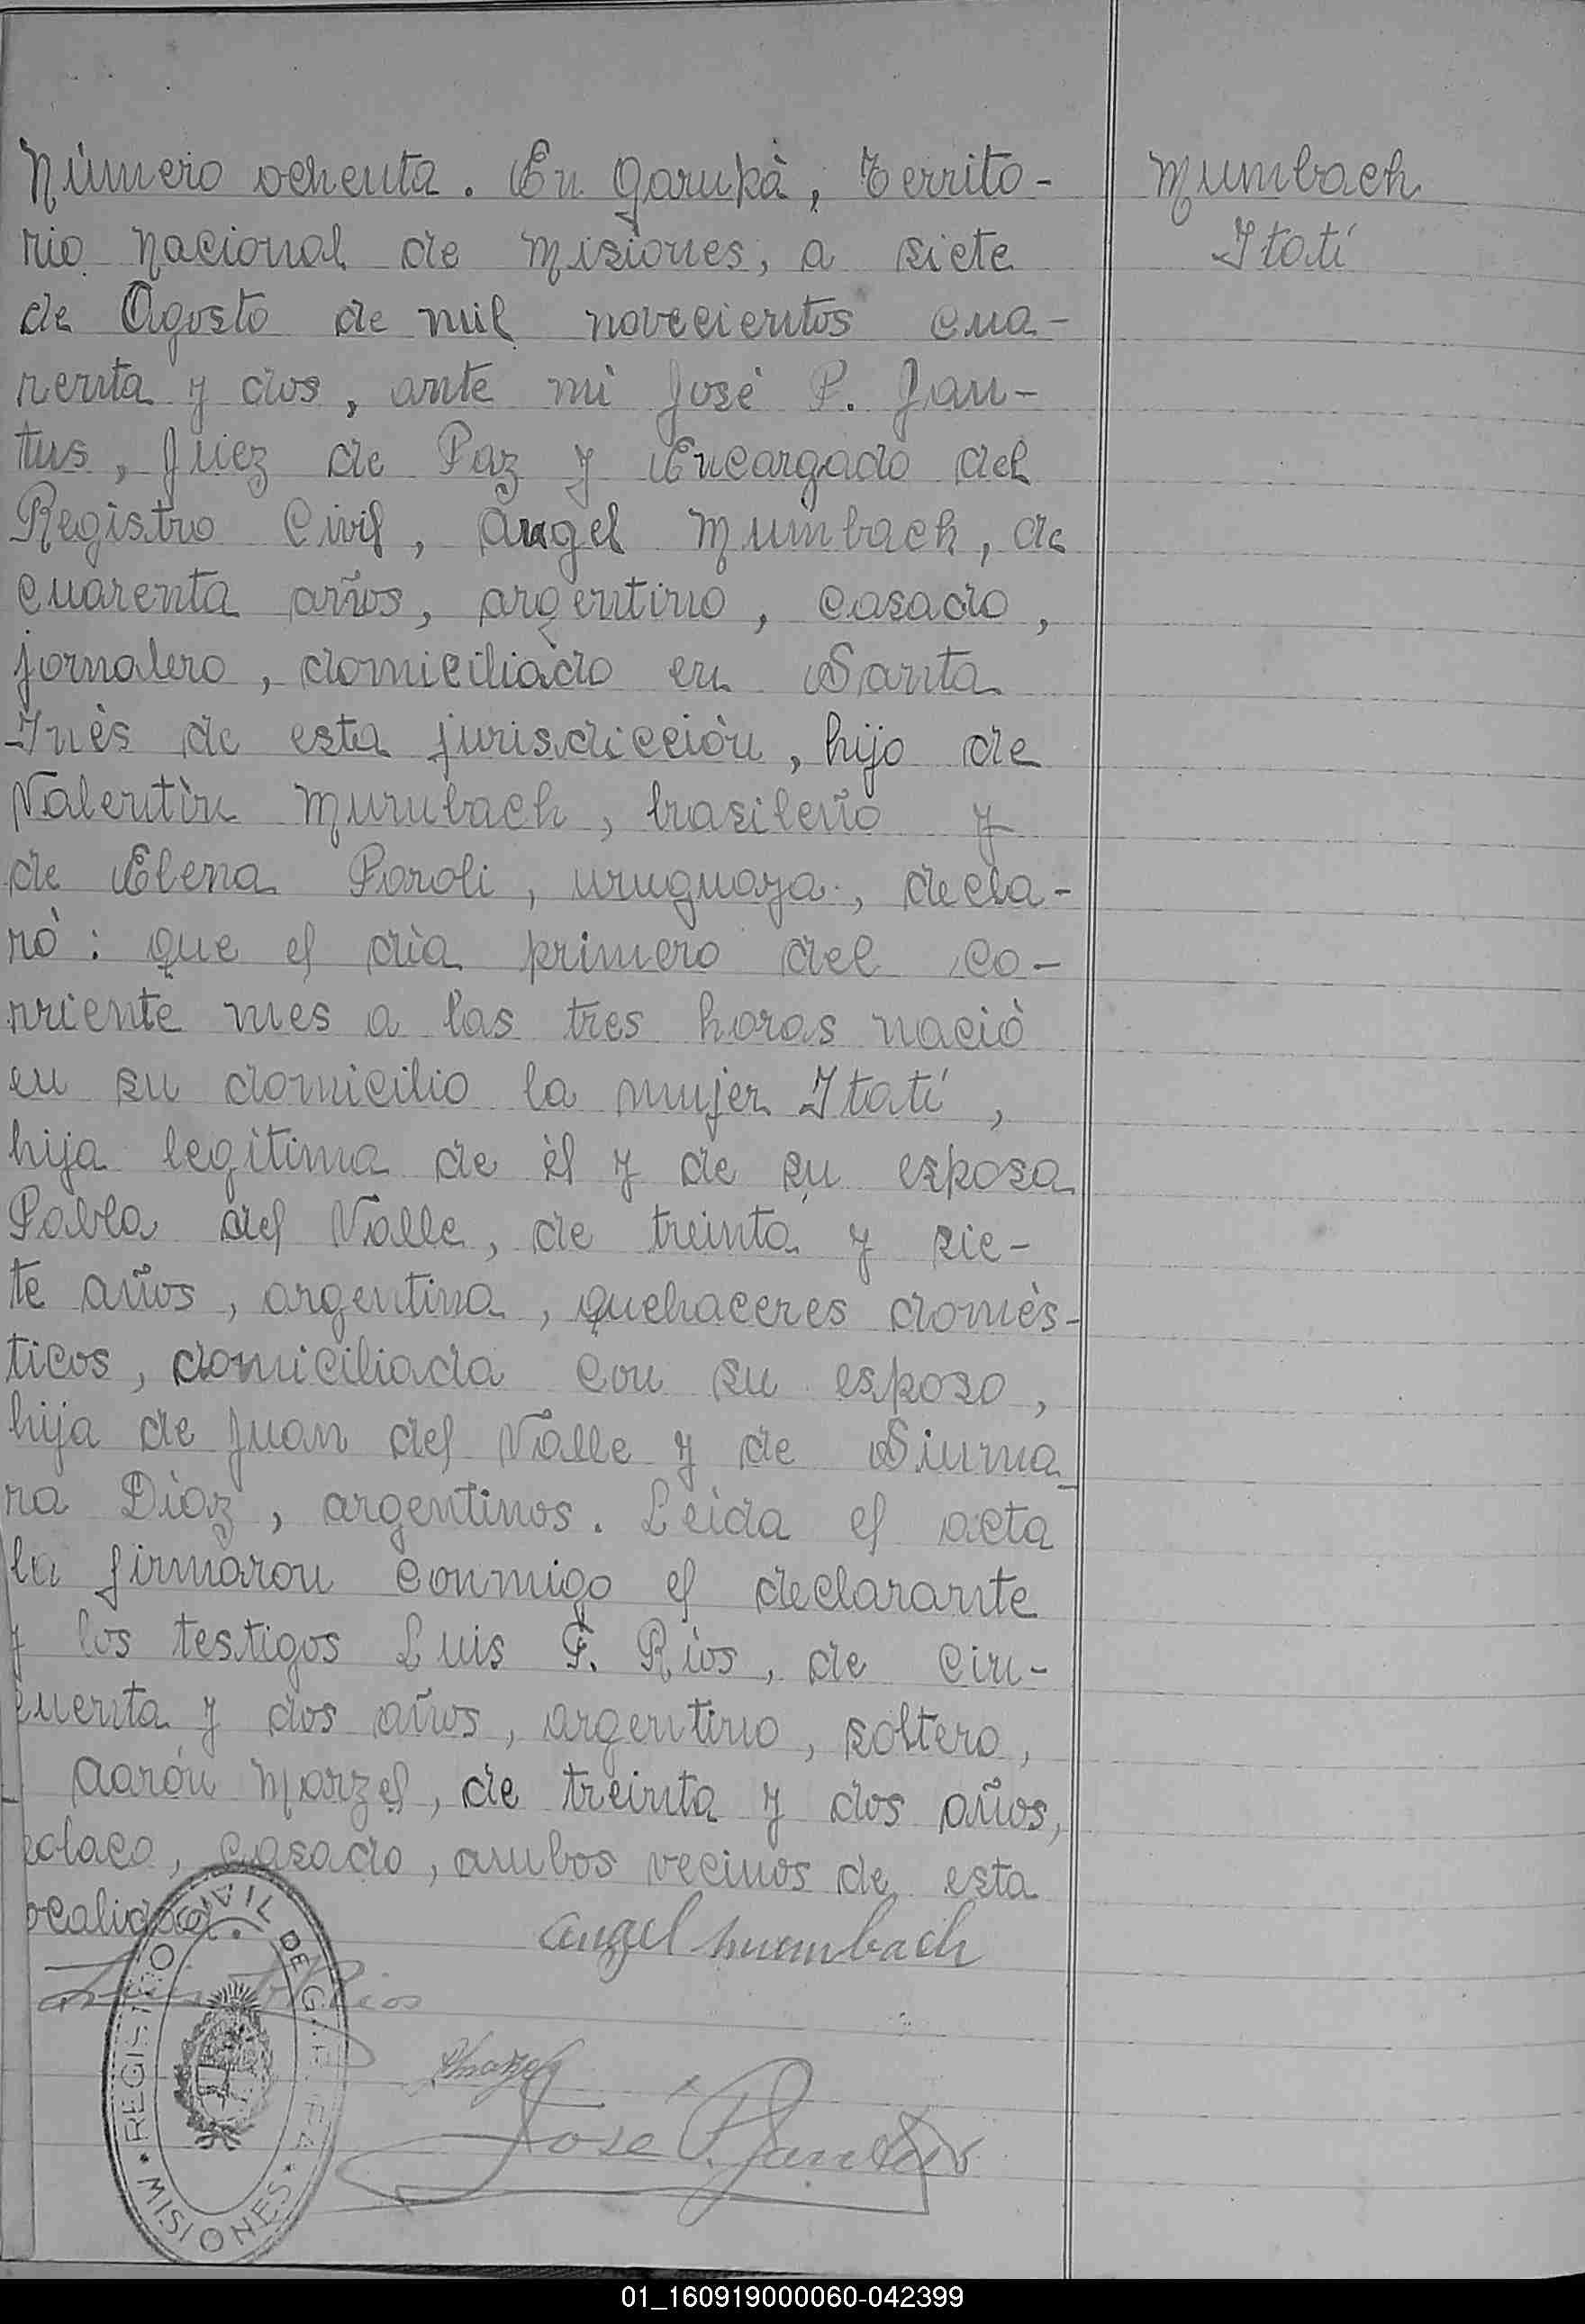 Número ochenta. En Garupá, Territo-
rio Nacional de Misiones, a siete
de Agosto de mil novecientos cua-
renta y dos, ante mi José P. Jan-
tus, Juez de Paz y Encargado del
Registro Civil, Angel Mumbach, de
cuarenta años, argentino, casado,
jornalero, domiciliado en Santa
Inés de esta jurisdicción, hijo de
Valentín Mumbach, brasileño y
de Elena Paroli, uruguaya, decla-
ró: que el día primero del co-
rriente mes a las tres horas nació
en su domicilio la mujer Itatí,
hija legítima de él y de su esposa
Pabla del Valle, de treinta y sie-
te años, argentina, quehaceres domés-
ticos, domiciliada con su esposo,
hija de Juan del Valle y de Sinma-
ra Díaz, argentinos. Leida el acta
la firmaron conmigo el declarante
y los testigos Luis F. Ríos, de cin-
cuenta y dos años, argentino, soltero,
Aarón Marzel, de treinta y dos años,
polaco, casado, ambos vecinos de esta
localidad.
Angel Mumbach
Luis F. Rios
José P. Jantus
Mumbach
Itatí
REGISTRO CIVIL DE GARUPA
* MISIONES *
01_160919000060-042399